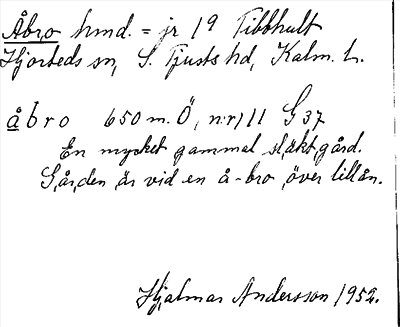 Åbro hmd. = jr 19 Tibbhult
Hjorteds sn, S. Tjusts hd, Kalm. L.
åbro 650 m. Ö, nr, 11 G 37
En mycket gammal släktgård.
Gården är vid en å-bro över lillån.
Hjalmar Andersson 1952.